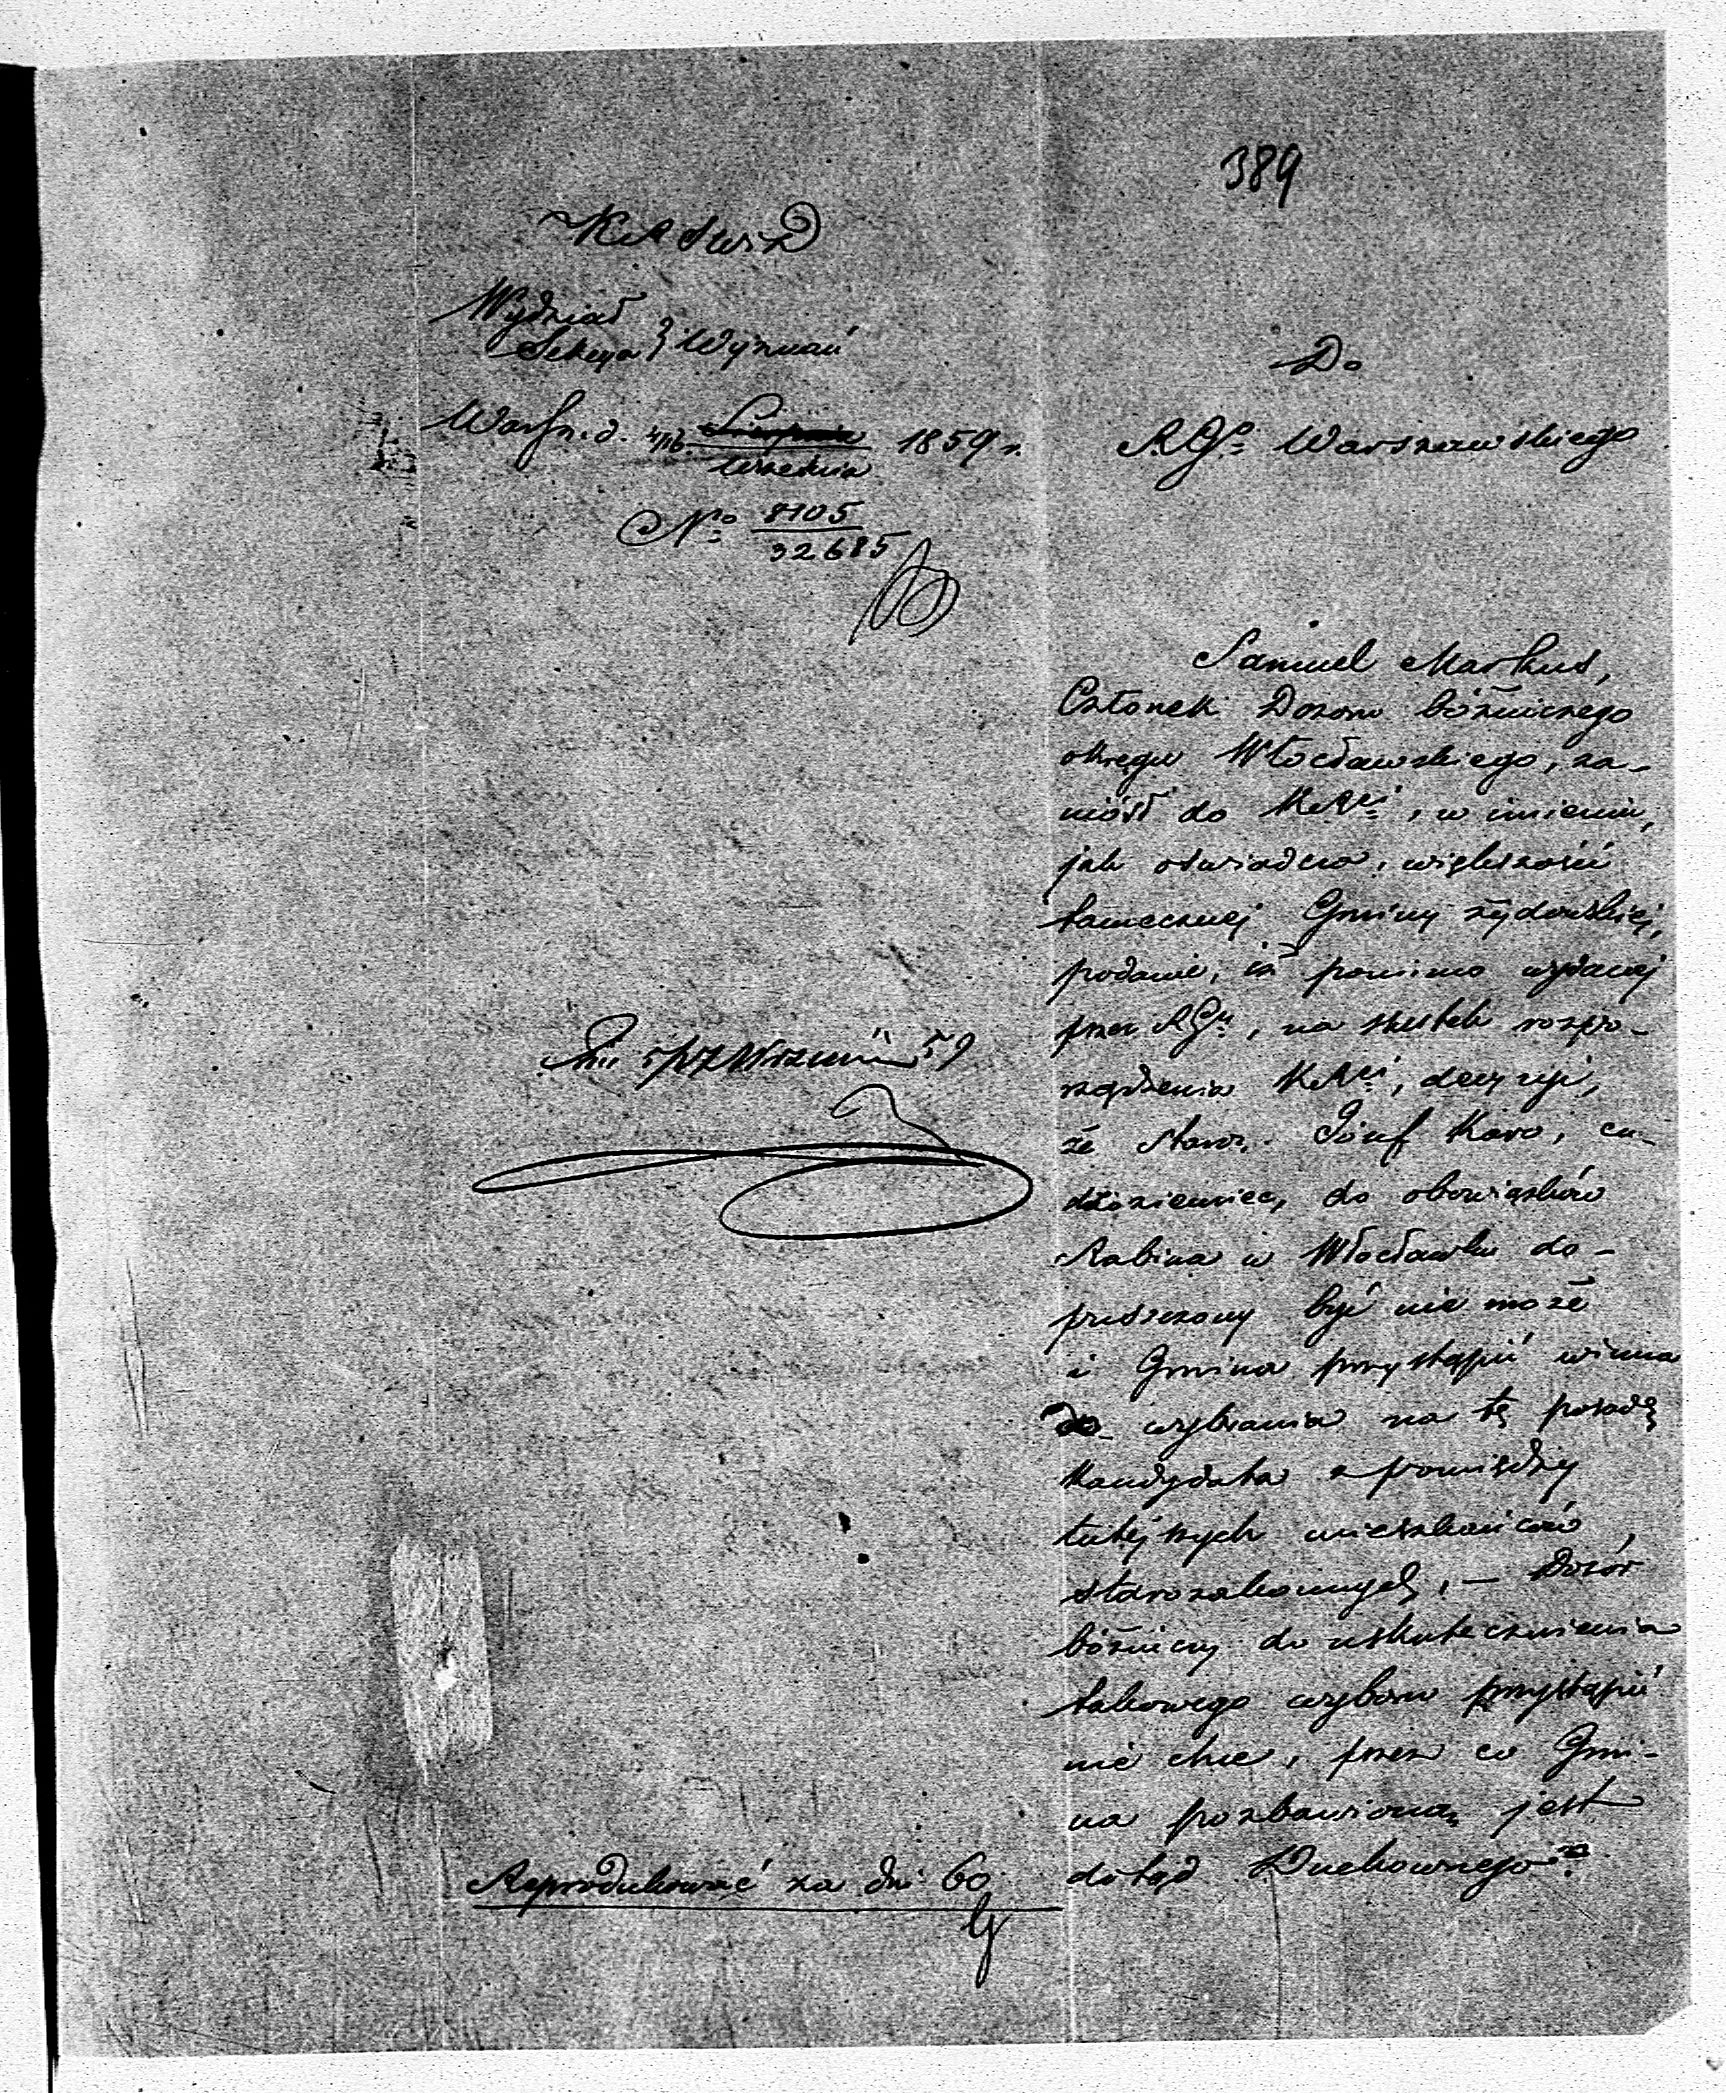 389
KRSWiD
Wydział
Sekcya } Wyznań
Warsz. d. 4/16 Sierpnia 1859 r.
Września
No 8105
32685
Do
RGo Warszawskiego
Samuel Markus,
Członek Dozoru bóżniczego
okręgu Włocławskiego, za-
niósł do KRci, w imieniu,
jak oświadcza, większości
tamecznej Gminy żydowskiej,
podanie, iż pomimo wydanej
przez RGn, na skutek rozpo-
rządzenia KRci, decyzyi,
że staroz. Józef Karo, cu-
dzoziemiec, do obowiązków
Rabina w Włocławku do-
puszczony być nie może
i Gmina przystąpić winna
do wybrania na tę posadę
Kandydata z pomiędzy
tutejszych mieszkańców
starozakonnych, – Dozór
bóżniczy do uskutecznienia
takowego wyboru przystąpić
nie chce, przez co Gmi-
na pozbawioną jest
dotąd Duchownego.
5/17 Września 59
Reprodukować za dni 60